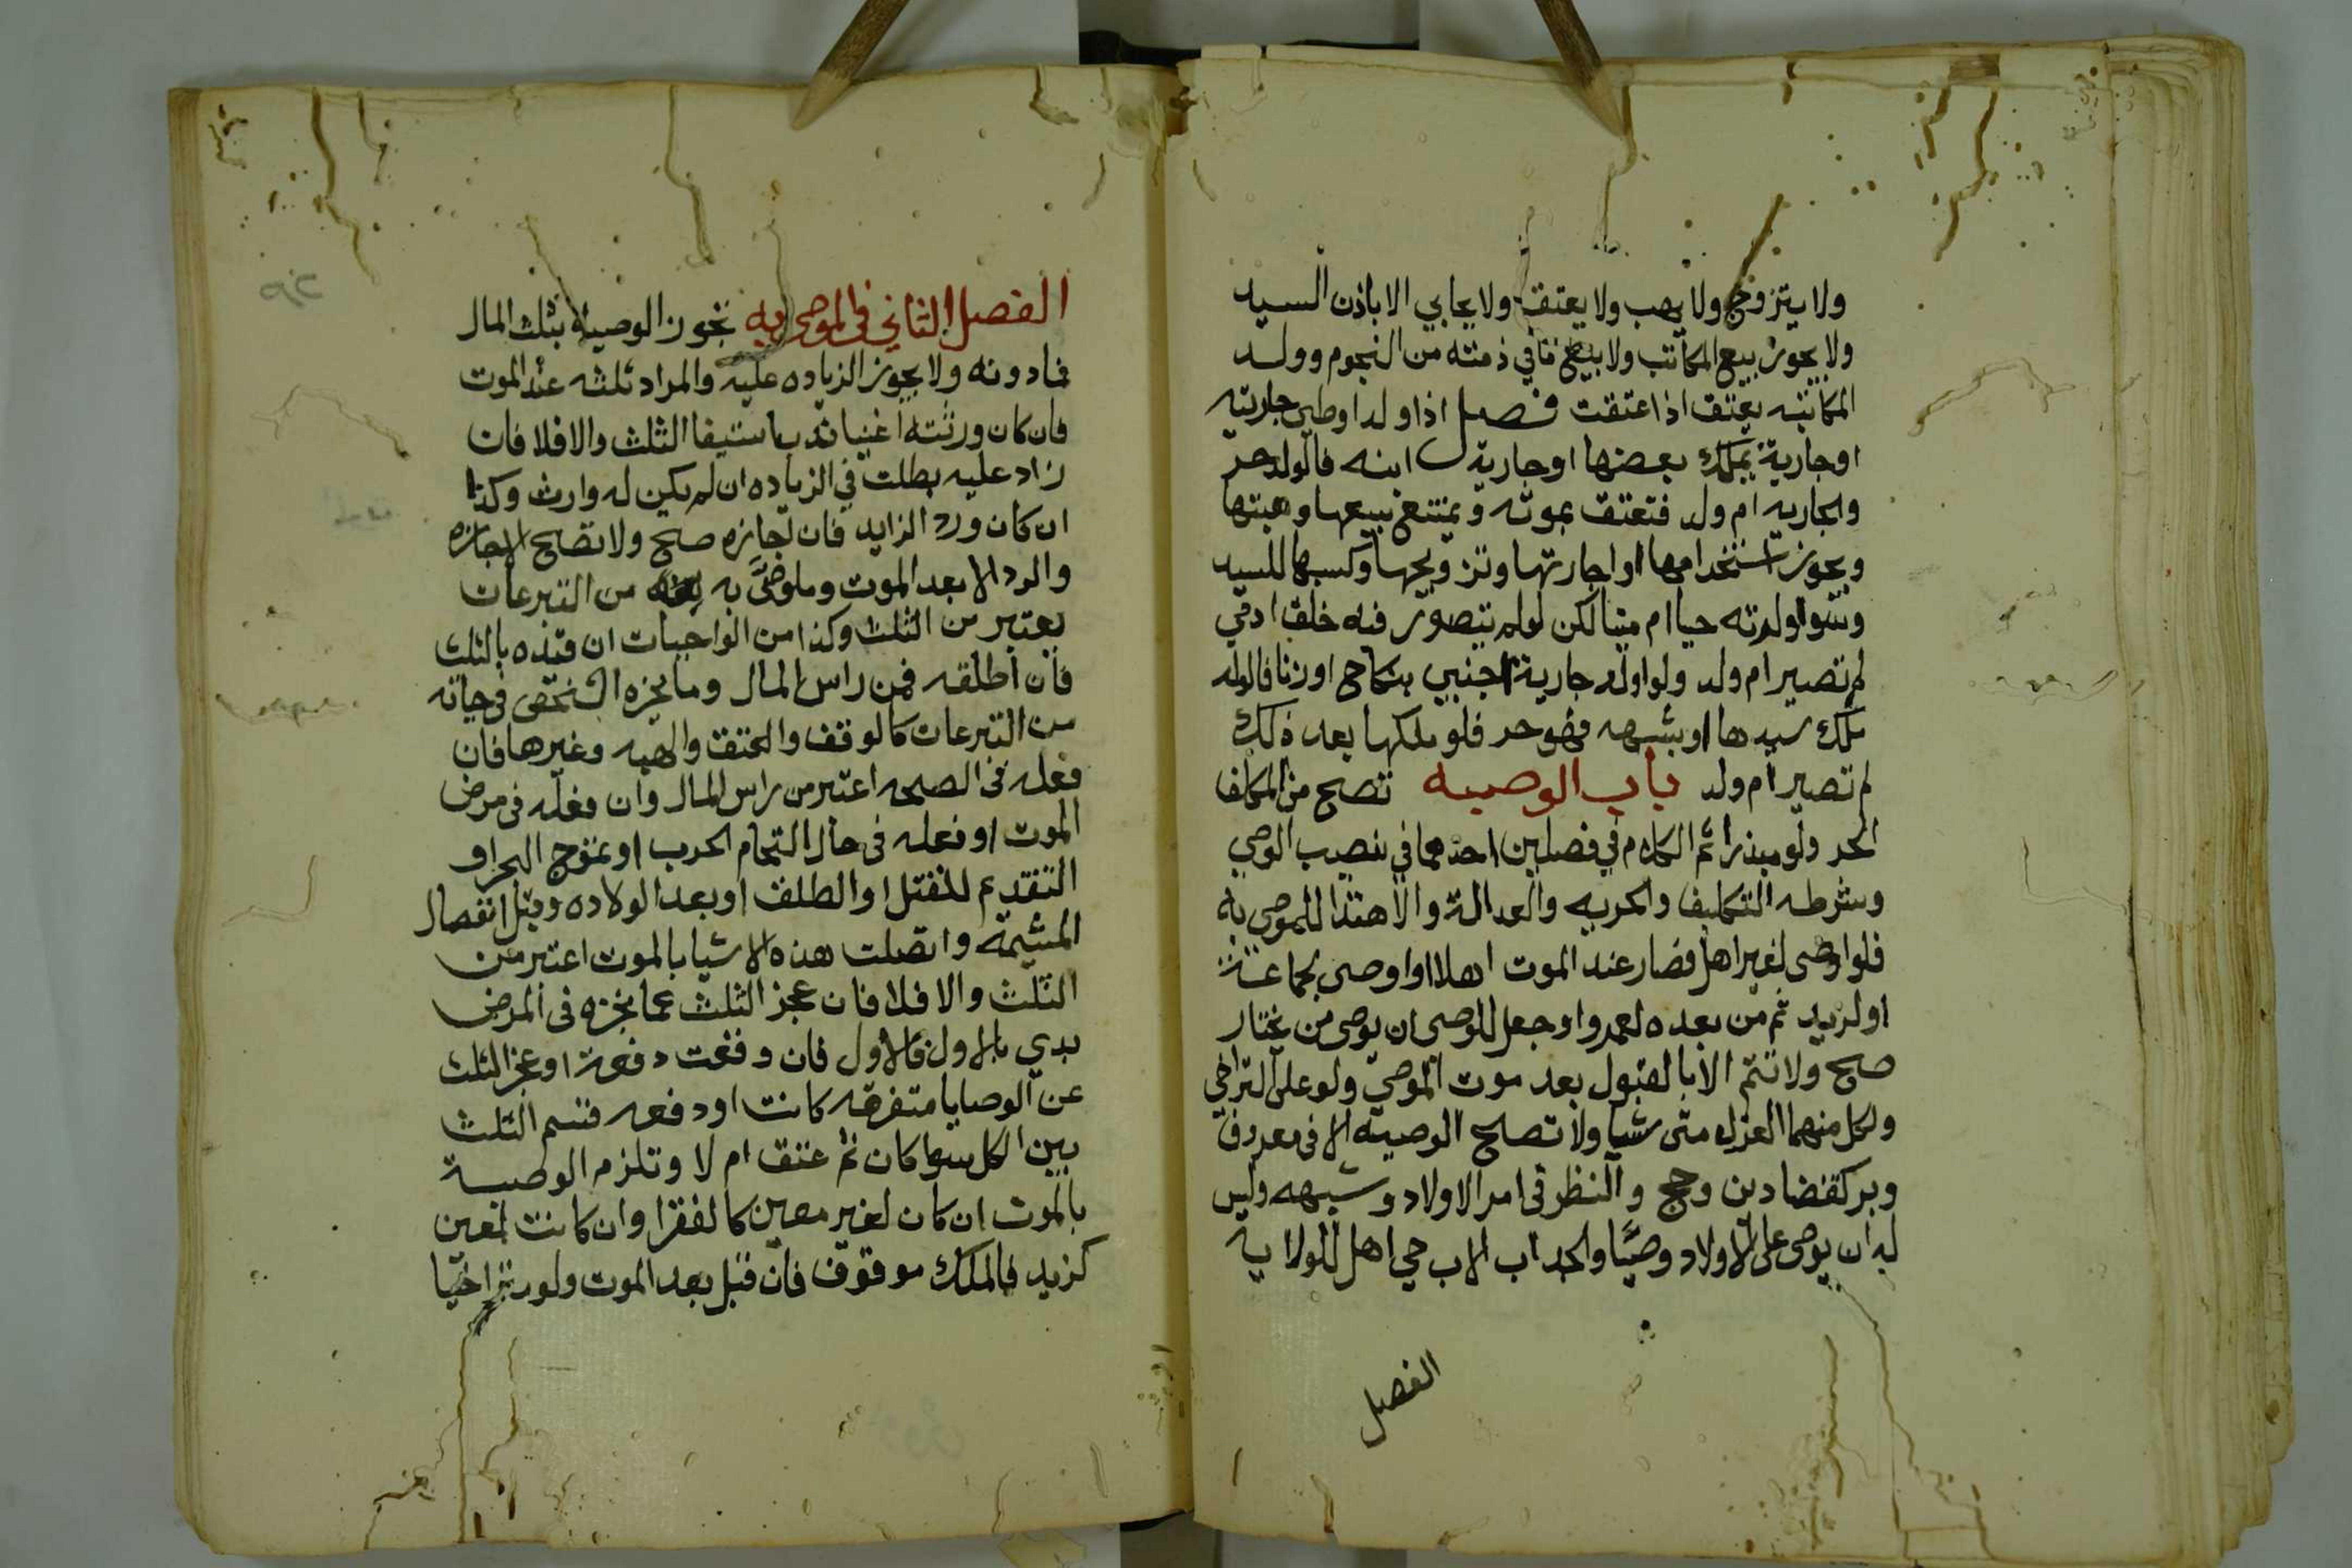 ولا يتزوج ولا يهب ولا يعتق ولا يحابي الا باذن السيد
ولا يجوز بيع المكاتب ولا بيع مافي ذمته من النجوم وولد
المكاتبه يعتق اذا عتقت فصل اذا اولد او وطي جاريته
او جارية يملك بعضها او جارية ابنه فالولد حر
والجاريه ام ولد فتعتق بموته ويمتنع بيعها وهبتها
ويجوز استخدامها او اجارتها وتزويجها وكسبها للسيد
وسوا ولدته حيا ام ميتا لكن لو لم يتصور فيه خلق ادمي
لم تصير ام ولد ولو اولد جارية اجنبي بنكاح او زنا فالولد
ملك سيدها او بشبهه فهو حر فلو ملكها بعد ذلك
لم تصير ام ولد باب الوصيه تصح من المكلف
الحر ولو مبذرا ثم الكلام في فصلين احدهما في نصيب الوصي
وشرطه التكليف والحريه والعدالة والاهتدا للموصى به
فلو اوصى لغير اهل فصار عند الموت اهلا او اوصى لجماعة
او لزيد ثم من بعده لعمرو او جعل للوصي ان يوصي من يختار
صح ولا تتم الا بالقبول بعد موت الموصي ولو على التراخي
ولكل منهما العزل متى شيا ولا تصح الوصيه الا في معروف
وبر كقضا دين وحج والنظر في امر الاولاد وشبهه وليس
له ان يوصي على الاولاد وصيًا والجد اب الاب حي اهل للولاية
الفصل
الفصل الثاني في الموصى به تجوز الوصية بثلث المال
فما دونه ولا يجوز الزياده عليه والمراد ثلثه عند الموت
فان كان ورثته اغنيا ندب استيفا الثلث والا فلا فان
زاد عليه بطلت في الزياده ان لم يكن له وارث وكذا
ان كان ورد الزايد فان اجازه صح ولا تصح الاجازه
والرد الا بعد الموت وما وصَّى به من التبرعات
يعتبر من الثلث وكذا من الواجبات ان قيده بالثلث
فان اطلقه فمن راس المال وما ينجزه الشخص في حياته
من التبرعات كالوقف والعتق والهبه وغيرها فان
فعله في الصحه اعتبر من راس المال وان فعله في مرض
الموت او فعله في حال التحام الحرب او تموج البحر او
التقديم للقتل او الطلق او بعد الولاده وقبل انفصال
المشيمة واتصلت هذه الاشيا بالموت اعتبر من
الثلث والا فلا فان عجز الثلث عما نجزه في المرض
بدي بالاول فالاول فان وقعت دفعة او عجز الثلث
عن الوصايا متفرقه كانت او دفعه قسم الثلث
بين الكل سوا كان ثم عتق ام لا وتلزم الوصية
بالموت ان كان لغير معين كالفقرا وان كانت لمعين
كزيد فالملك موقوف فان قبل بعد الموت ولو متراخيا